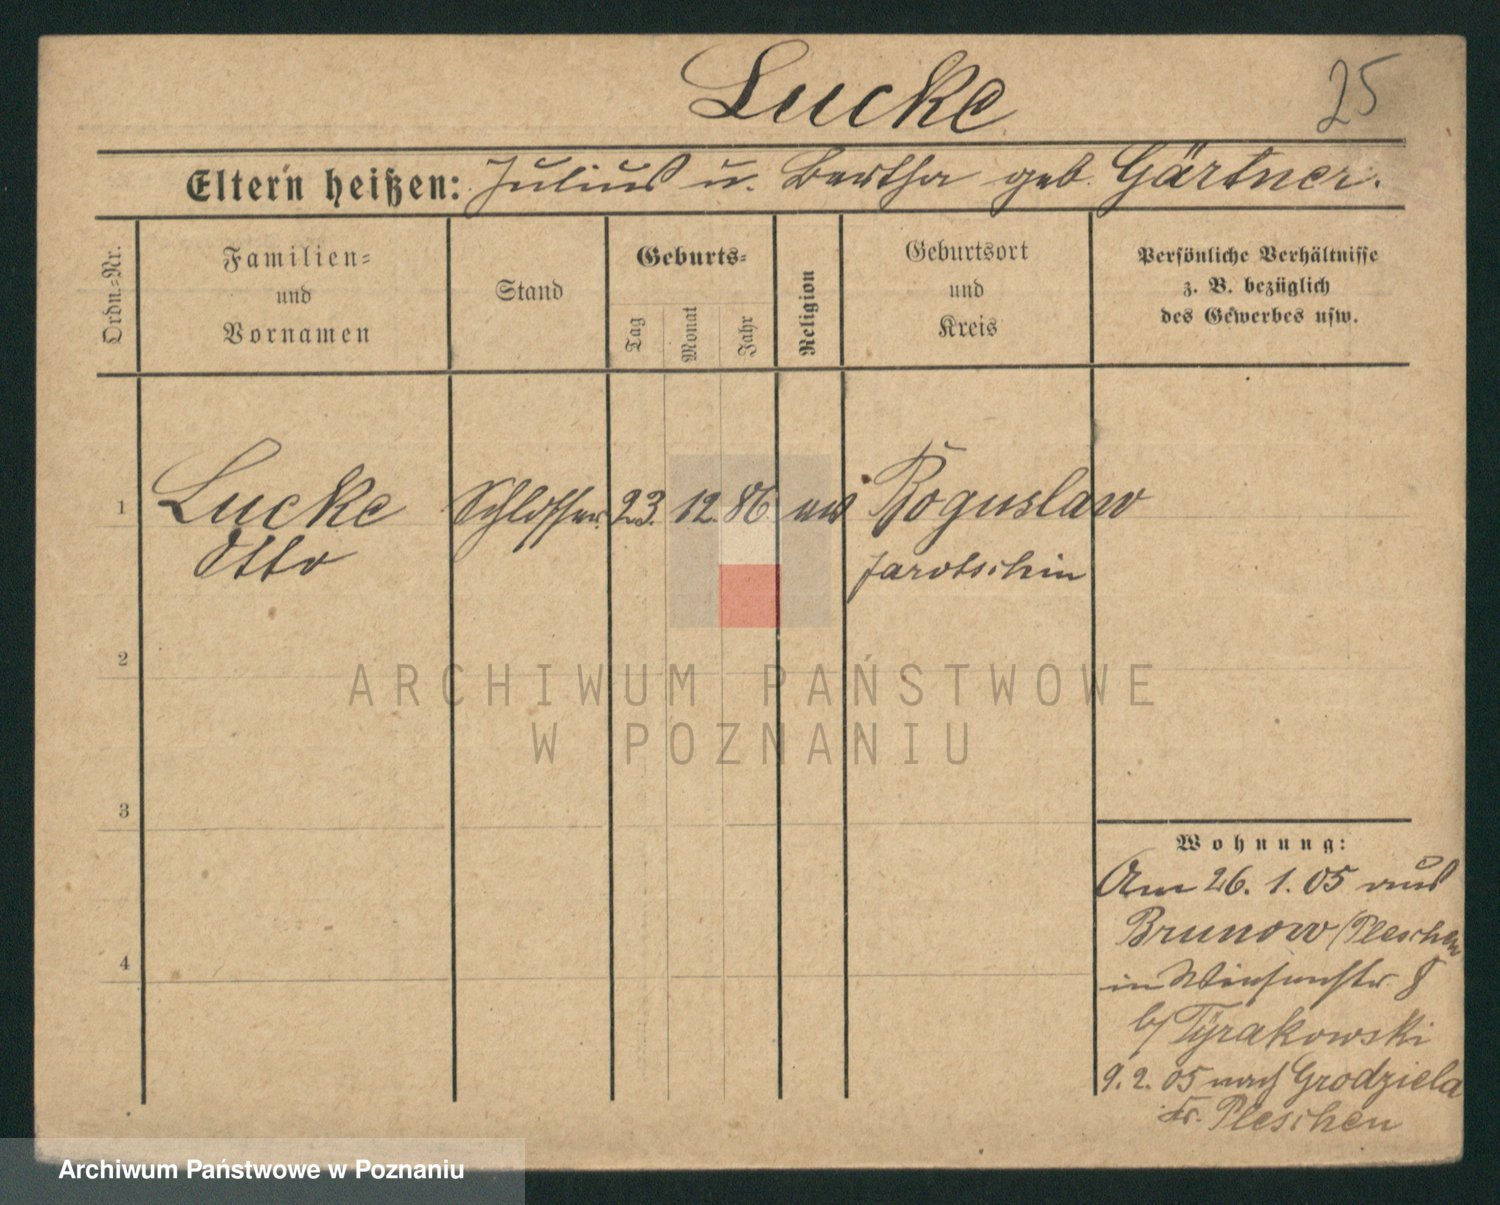 Lucke 25
Eltern heißen: Julius u. Bertha geb. Gärtner.
Ordn.-Nr.
Familien-
und
Vornamen
Stand
Geburts-
Tag
Monat
Jahr
Religion
Geburtsort
und
Kreis
Persönliche Verhältnisse
z. B. bezüglich
des Gewerbes usw.
1 Lucke Schlosser 23. 12. 86 ev Boguslaw
Otto Jarotschin
2
ARCHIWUM PAŃSTWOWE
W POZNANIU
3
4
Wohnung:
Am 26. 1. 05 aus
Brunow/Pleschen
in 8
b/ Tyrakowski
9. 2. 05 nach Grodziela
Kr. Pleschen
Archiwum Państwowe w Poznaniu